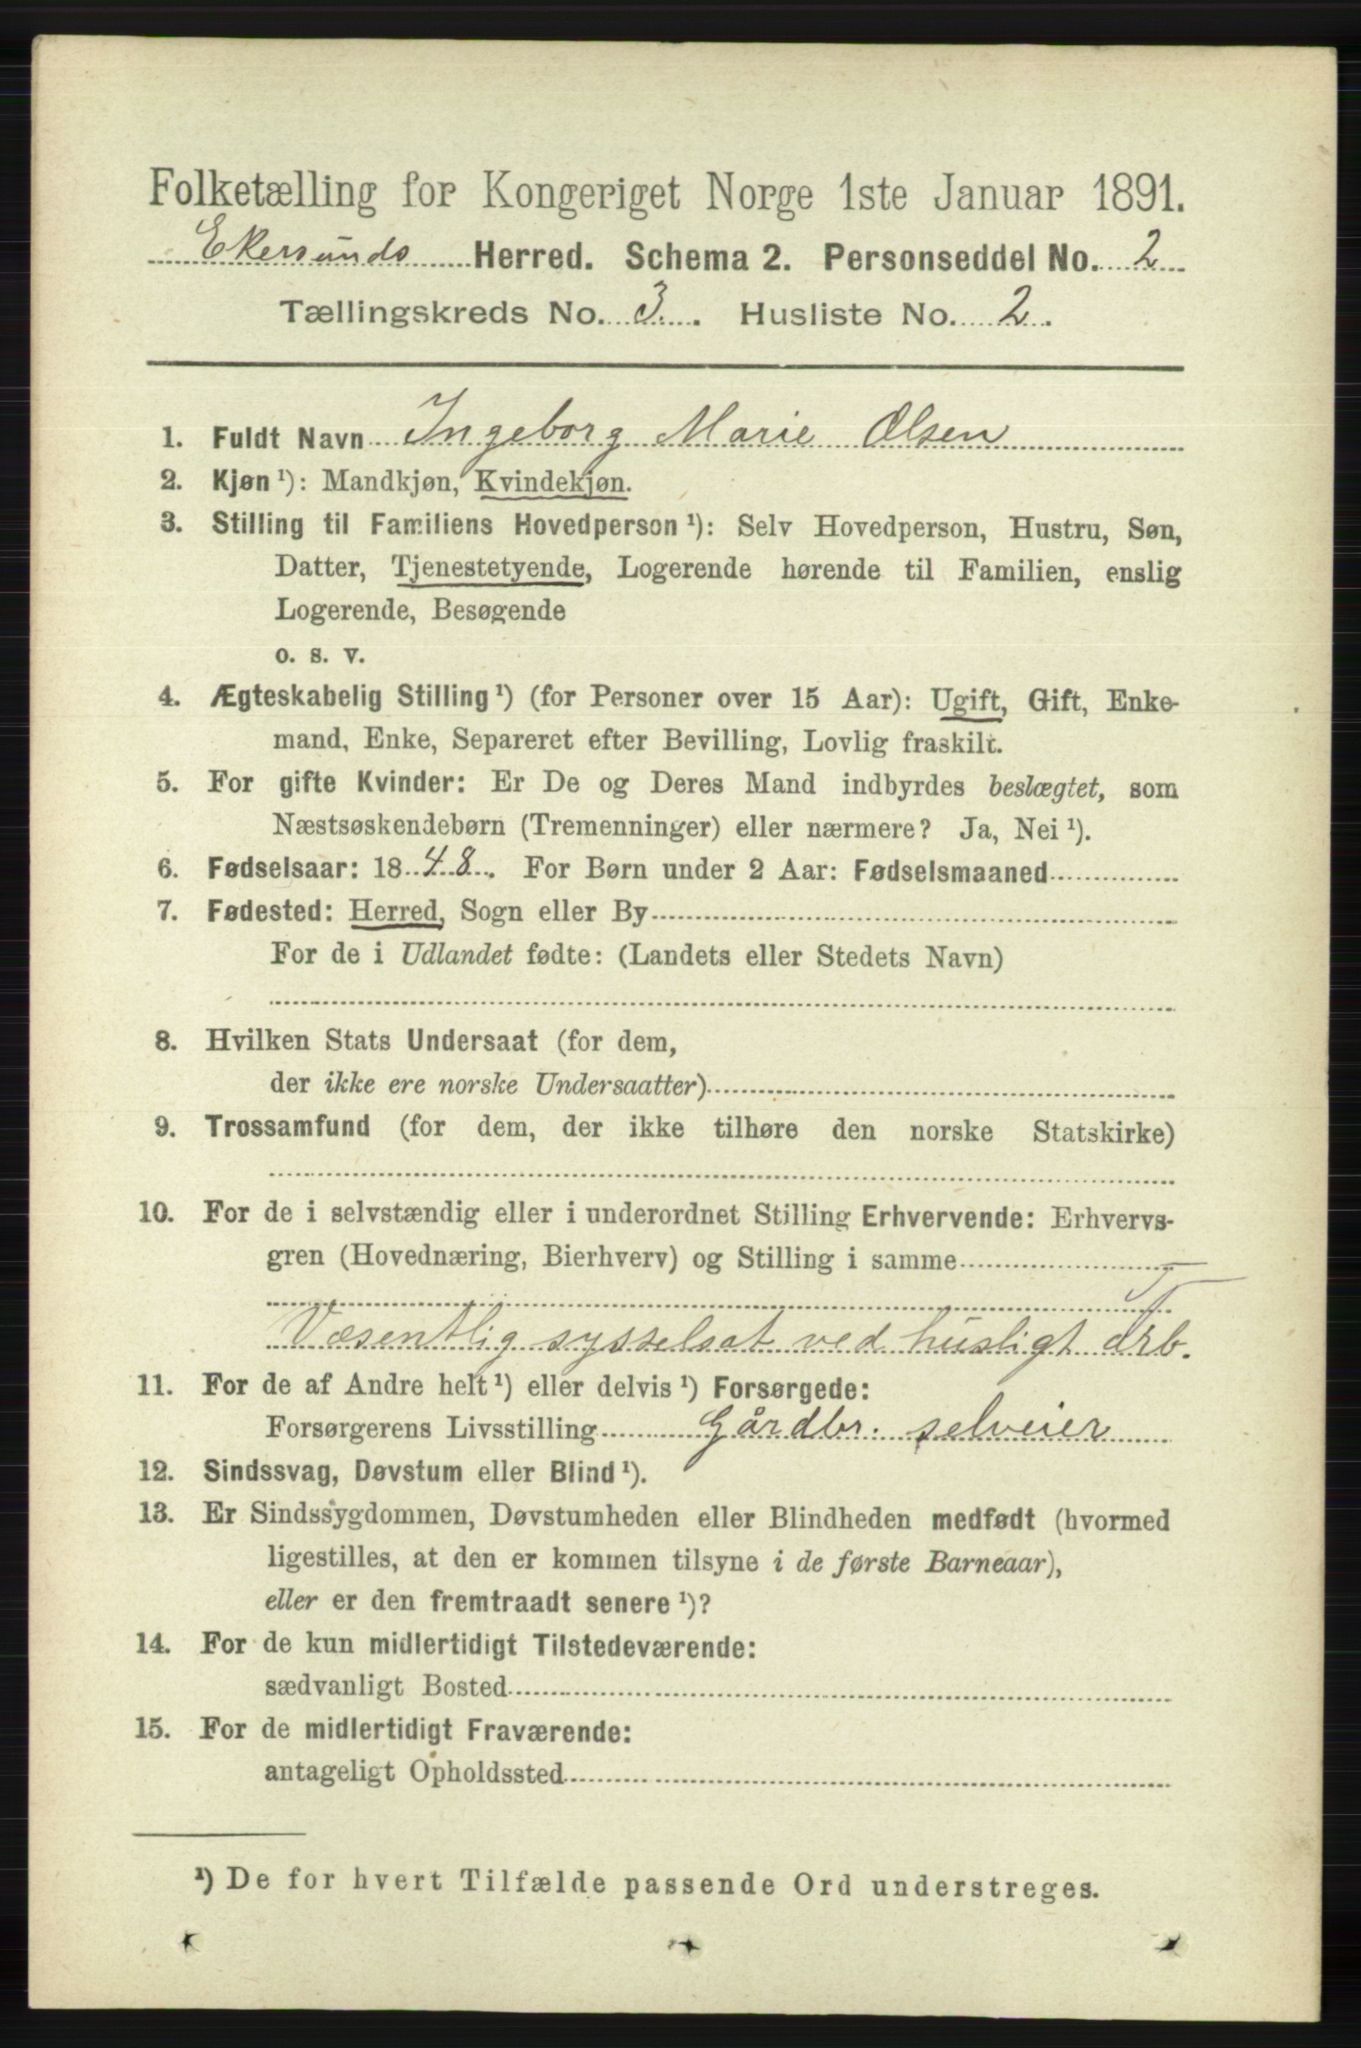 Folketælling for Kongeriget Norge 1ste Januar 1891.
Ekersunds Herred. Schema 2. Personseddel No. 2
Tællingskreds No. 3. Husliste No. 2.
1. Fuldt Navn Ingeborg Marie Olsen
2. Kjøn ¹): Mandkjøn, Kvindekjøn.
3. Stilling til Familiens Hovedperson ¹): Selv Hovedperson, Hustru, Søn,
Datter, Tjenestetyende, Logerende hørende til Familien, enslig
Logerende, Besøgende
o. s. v.
4. Ægteskabelig Stilling ¹) (for Personer over 15 Aar): Ugift, Gift, Enke-
mand, Enke, Separeret efter Bevilling, Lovlig fraskilt.
5. For gifte Kvinder: Er De og Deres Mand indbyrdes beslægtet, som
Næstsøskendebørn (Tremenninger) eller nærmere? Ja, Nei ¹).
6. Fødselsaar: 1848. For Børn under 2 Aar: Fødselsmaaned
7. Fødested: Herred, Sogn eller By
For de i Udlandet fødte: (Landets eller Stedets Navn)
8. Hvilken Stats Undersaat (for dem,
der ikke ere norske Undersaatter)
9. Trossamfund (for dem, der ikke tilhøre den norske Statskirke)
10. For de i selvstændig eller i underordnet Stilling Erhvervende: Erhvervs-
gren (Hovednæring, Bierhverv) og Stilling i samme
T
Væsentlig sysselsat ved husligt Arb.
11. For de af Andre helt ¹) eller delvis ¹) Forsørgede:
Forsørgerens Livsstilling Gårdbr. selveier
12. Sindssvag, Døvstum eller Blind ¹).
13. Er Sindssygdommen, Døvstumheden eller Blindheden medfødt (hvormed
ligestilles, at den er kommen tilsyne i de første Barneaar),
eller er den fremtraadt senere ¹)?
14. For de kun midlertidigt Tilstedeværende:
sædvanligt Bosted
15. For de midlertidigt Fraværende:
antageligt Opholdssted
¹) De for hvert Tilfælde passende Ord understreges.